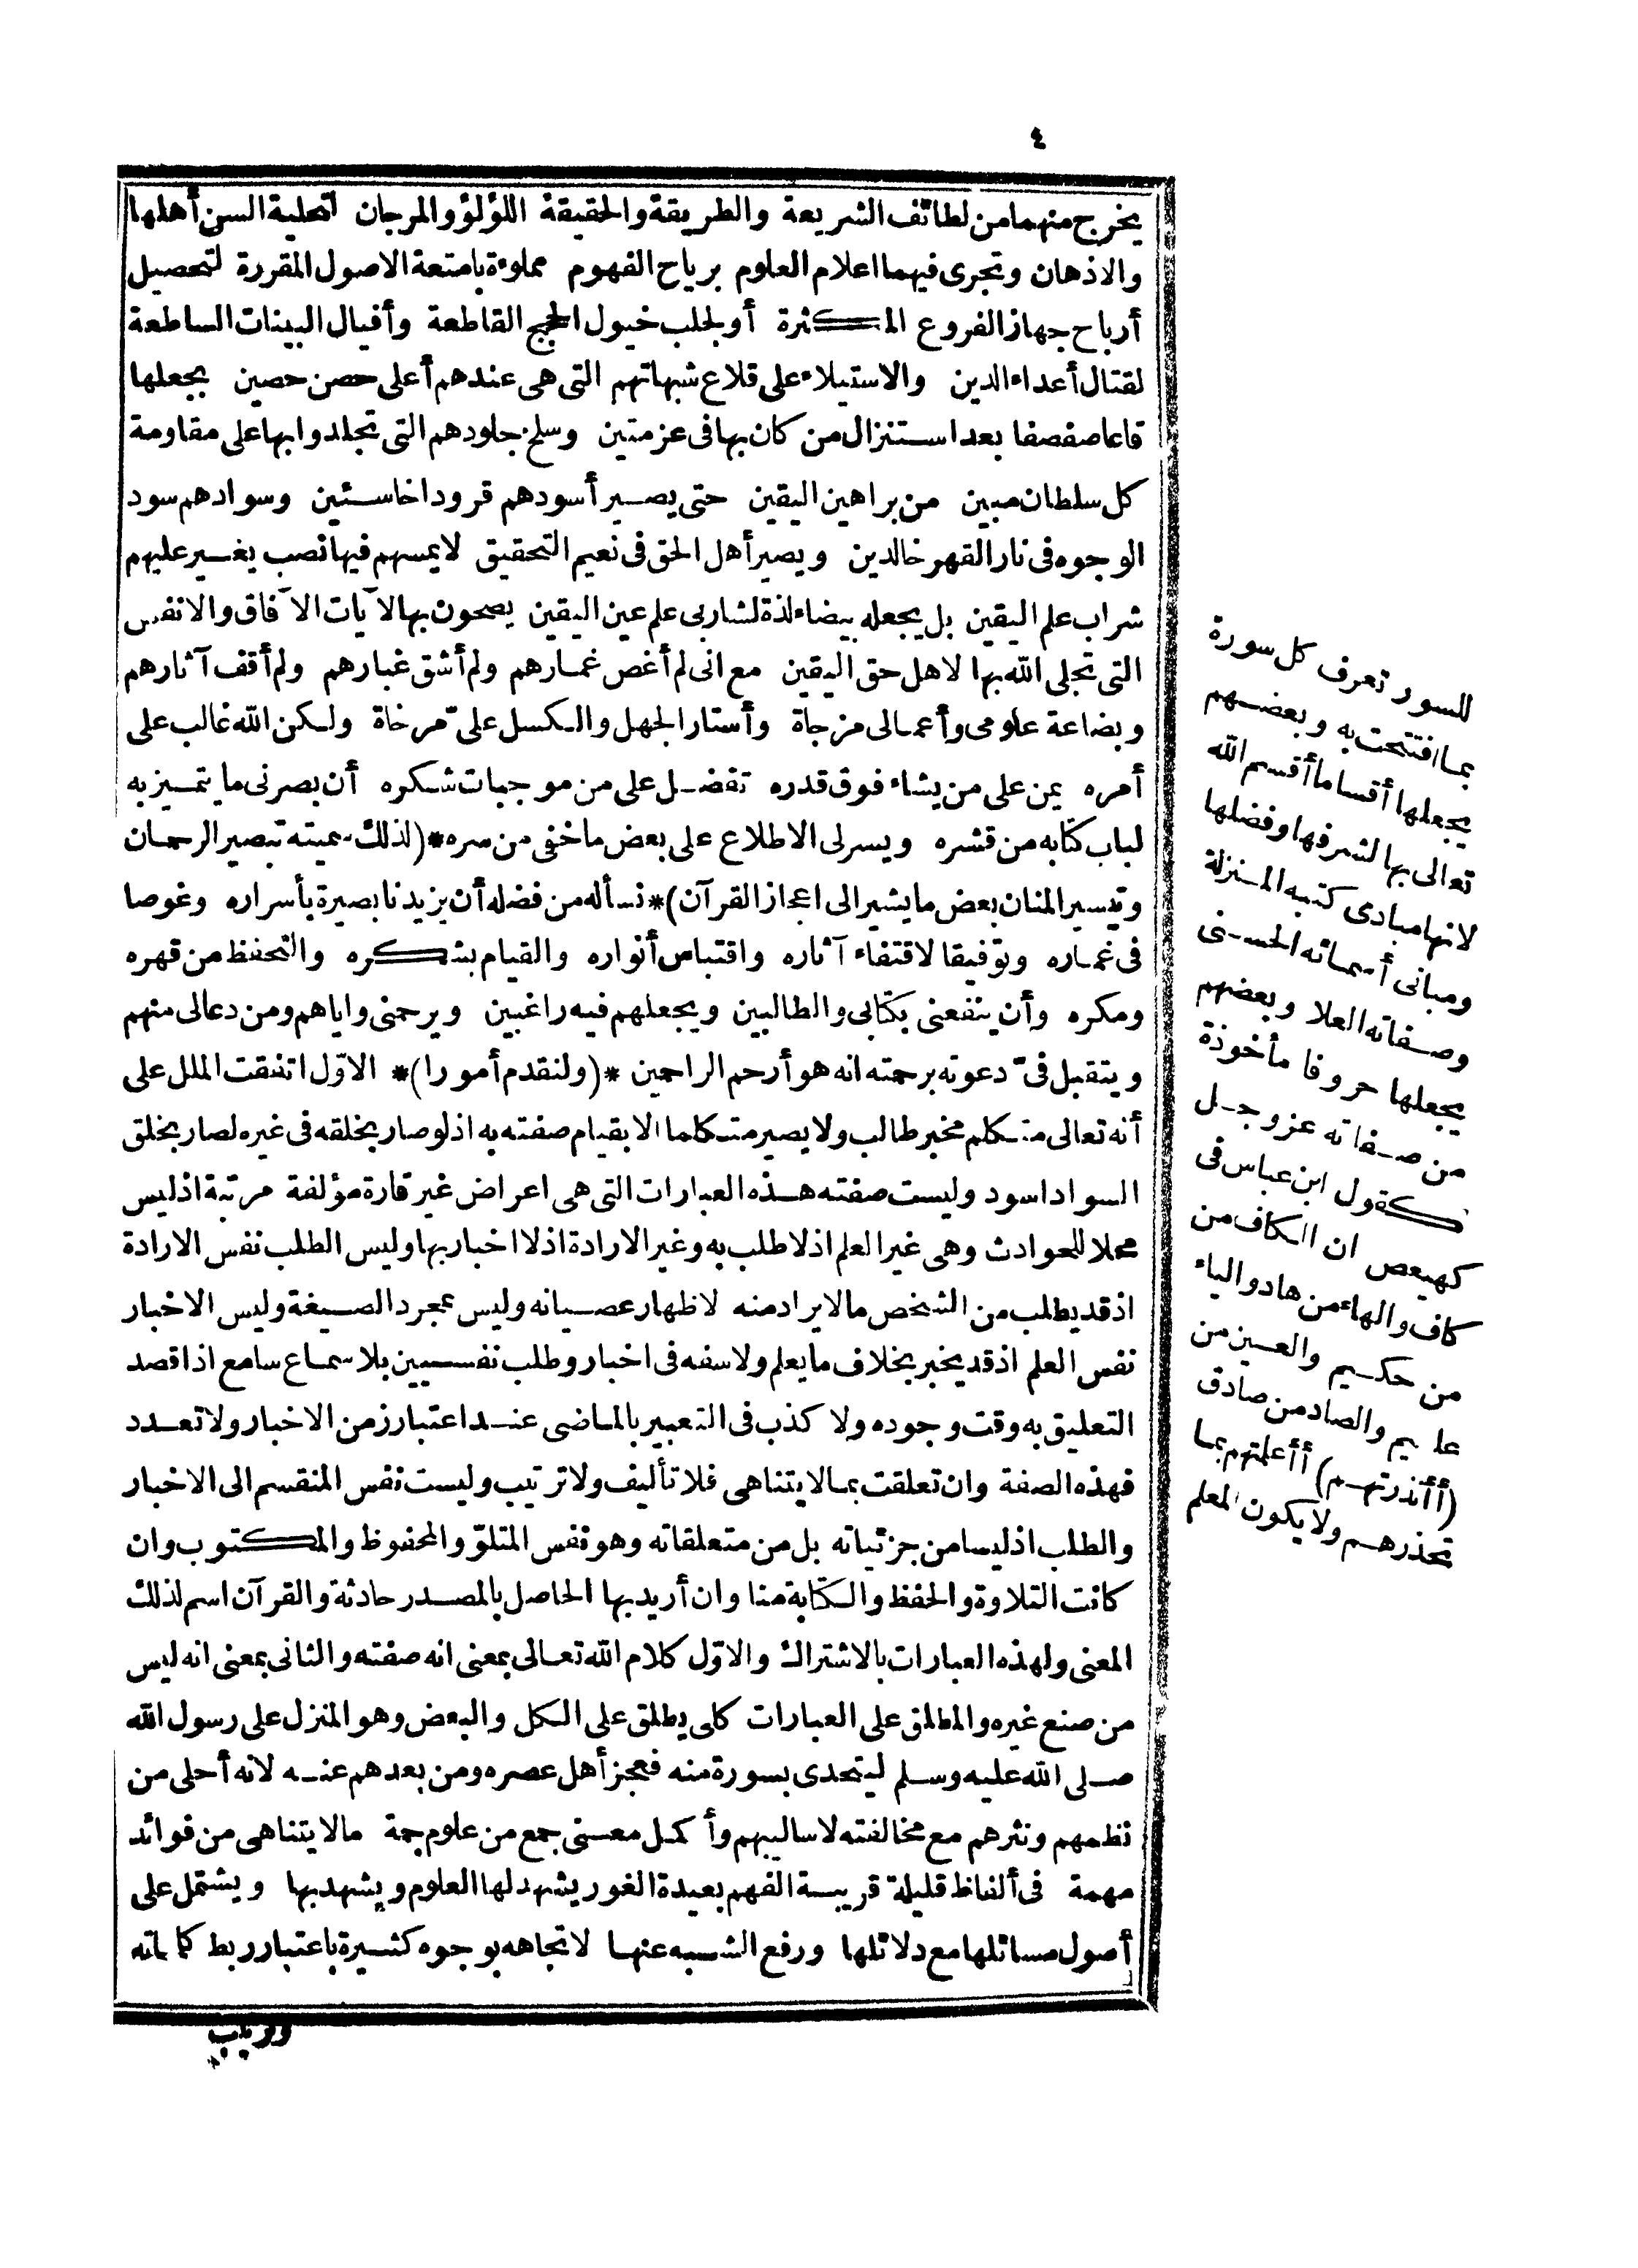 ٤
يخرج منهما من لطائف الشريعة والطريقة والحقيقة اللؤلؤ والمرجان لتحلية السن أهلها
والاذهان وتجرى فيهما اعلام العلوم برياح الفهوم مملوءة بامتعة الاصول المقررة لتحصيل
أرباح جهاز الفروع المكثرة أو لجلب خيول الحجج القاطعة وأفيال البينات الساطعة
لقتال أعداء الدين والاستيلاء على قلاع شبهاتهم التى هى عندهم أعلى حصن حصين يجعلها
قاعا صفصفا بعد استنزال من كان بها فى عز متين وسلخ جلودهم التى تجلدوا بها على مقاومة
كل سلطان مبين من براهين اليقين حتى يصير أسودهم قرودا خاسئين وسوادهم سود
الوجوه فى نار القهر خالدين ويصير أهل الحق فى نعيم التحقيق لا يمسهم فيها نصب يغير عليهم
شراب علم اليقين بل يجعله بيضاء لذة لشاربى علم عين اليقين يصحون بها لآيات الآفاق والانفس
التى تجلى الله بها لاهل حق اليقين مع انى لم أغص غمارهم ولم أشق غبارهم ولم أقف آثارهم
وبضاعة علومى وأعمالى مزجاة وأستار الجهل والكسل علىّ مرخاة ولكن الله غالب على
أمره يمن على من يشاء فوق قدره تفضل على من موجبات شكره أن بصرنى ما يتميز به
لباب كتابه من قشره ويسر لى الاطلاع على بعض ما خفى من سره *(لذلك سميته تبصير الرحمان
وتيسير المنان بعض ما يشير الى اعجاز القرآن)* نسأله من فضله أن يزيدنا بصيرة بأسراره وغوصا
فى غماره وتوفيقا لاقتفاء آثاره واقتباس أنواره والقيام بشكره والتحفظ من قهره
ومكره وأن ينفعنى بكتابى والطالبين ويجعلهم فيه راغبين ويرحمنى واياهم ومن دعا لى منهم
ويتقبل فىّ دعوته برحمته انه هو أرحم الراحمين *(ولنقدم أمورا)* الاوّل اتفقت الملل على
أنه تعالى متكلم مخبر طالب ولا يصير متكلما الا بقيام صفته به اذ لو صار بخلقه فى غيره لصار بخلق
السواد اسود وليست صفته هذه العبارات التى هى اعراض غير قارة مؤلفة مرتبة اذ ليس
محلا للحوادث وهى غير العلم اذ لا طلب به وغير الارادة اذ لا اخبار بها وليس الطلب نفس الارادة
اذ قد يطلب من الشخص ما لا يراد منه لاظهار عصيانه وليس بمجرد الصيغة وليس الاخبار
نفس العلم اذ قد يخبر بخلاف ما يعلم ولا سفه فى اخبار وطلب نفسيين بلا سماع سامع اذا قصد
التعليق به وقت وجوده ولا كذب فى التعبير بالماضى عند اعتبار زمن الاخبار ولا تعدد
فهذه الصفة وان تعلقت بما لا يتناهى فلا تأليف ولا ترتيب وليست نفس المنقسم الى الاخبار
والطلب اذ ليسا من جزئياته بل من متعلقاته وهو نفس المتلوّ والمحفوظ والمكتوب وان
كانت التلاوة والحفظ والكتابة منا وان أريد بها الحاصل بالمصدر حادثة والقرآن اسم لذلك
المعنى ولهذه العبارات بالاشتراك والاوّل كلام الله تعالى بمعنى انه صفته والثانى بمعنى انه ليس
من صنع غيره والمطلق على العبارات كلى يطلق على الكل والبعض وهو المنزل على رسول الله
صلى الله عليه وسلم ليتحدى بسورة منه فعجز أهل عصره ومن بعدهم عنه لانه أحلى من
نظمهم ونثرهم مع مخالفته لاساليبهم وأكمل معنى جمع من علوم جمة ما لا يتناهى من فوائد
مهمة فى ألفاظ قليلة قريبة الفهم بعيدة الغور يشهد لها العلوم ويشهد بها ويشتمل على
أصول مسائلها مع دلائلها ورفع الشبه عنها لاتجاهه بوجوه كثيرة باعتبار ربط كلماته
وترتيب
للسور تعرف كل سورة
بما افتتحت به وبعضهم
يجعلها أقساما أقسم الله
تعالى بها لشرفها وفضلها
لانها مبادى كتبه المنزلة
ومبانى أسمائه الحسنى
وصفاته العلا وبعضهم
يجعلها حروفا مأخوذة
من صفاته عز وجل
كقول ابن عباس فى
كهيعص ان الكاف من
كاف والهاء من هاد والياء
من حكيم والعين من
عليم والصاد من صادق
(أأنذرتهم) أأعلمتهم بما
تحذرهم ولا يكون المعلم